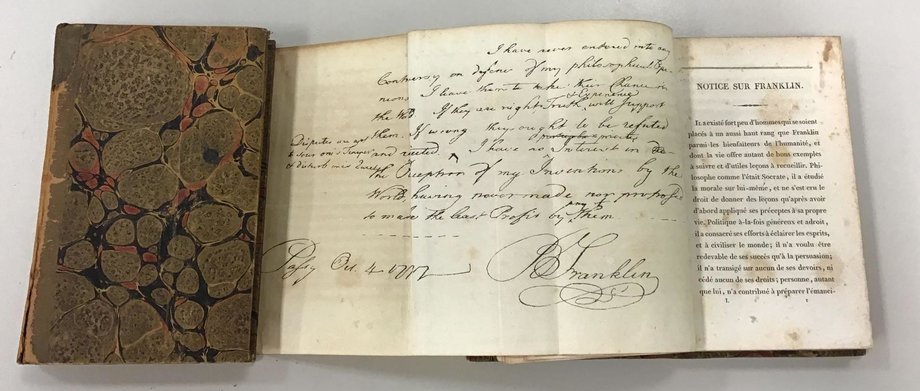 I have never entered into any
Controversy in defence of my philosophical Opi-
nions I leave them to take their Chance in
the World If they are right, Truth & Experience will support
them. If wrong they ought to be refuted
Disputes are apt
to sour ones Temper
& disturb ones Quiet
and rejected. I have no Interest in
the Reception of my Inventions by the
World, having never made nor proposed
to make the least Profit by any of them.
Passy Oct. 4 1777
B Franklin
NOTICE SUR FRANKLIN.
Il a existé fort peu d'hommes qui se soient
placés à un aussi haut rang que Franklin
parmi les bienfaiteurs de l'humanité, et
dont la vie offre autant de bons exemples
à suivre et d'utiles leçons à recueillir. Phi-
losophe comme l'était Socrate, il a étudié
la morale sur lui-même, et ne s'est cru le
droit de donner des leçons qu'après avoir
d'abord appliqué ses préceptes à sa propre
vie. Politique à-la-fois généreux et adroit,
il a consacré ses efforts à éclairer les esprits,
et à civiliser le monde; il n'a voulu être
redevable de ses succès qu'à la persuasion;
il n'a transigé sur aucun de ses devoirs, ni
cédé aucun de ses droits; personne, autant
que lui, n'a contribué à préparer l'émanci-
I. 1